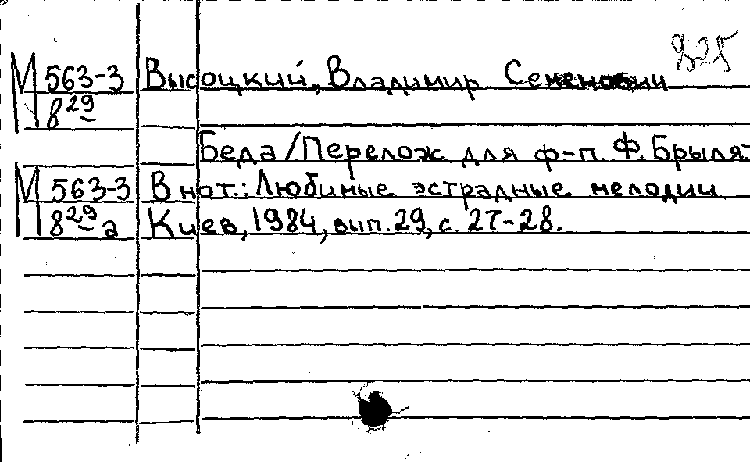 М 563-3 Высоцкий, Владимир Семенович
8 29
Беда / Перелож. для ф-п. Ф. Брыля.
М 563-3 В нот.: Любимые эстрадные мелодии
8 29 а Киев, 1984, вып. 29, с. 27-28.